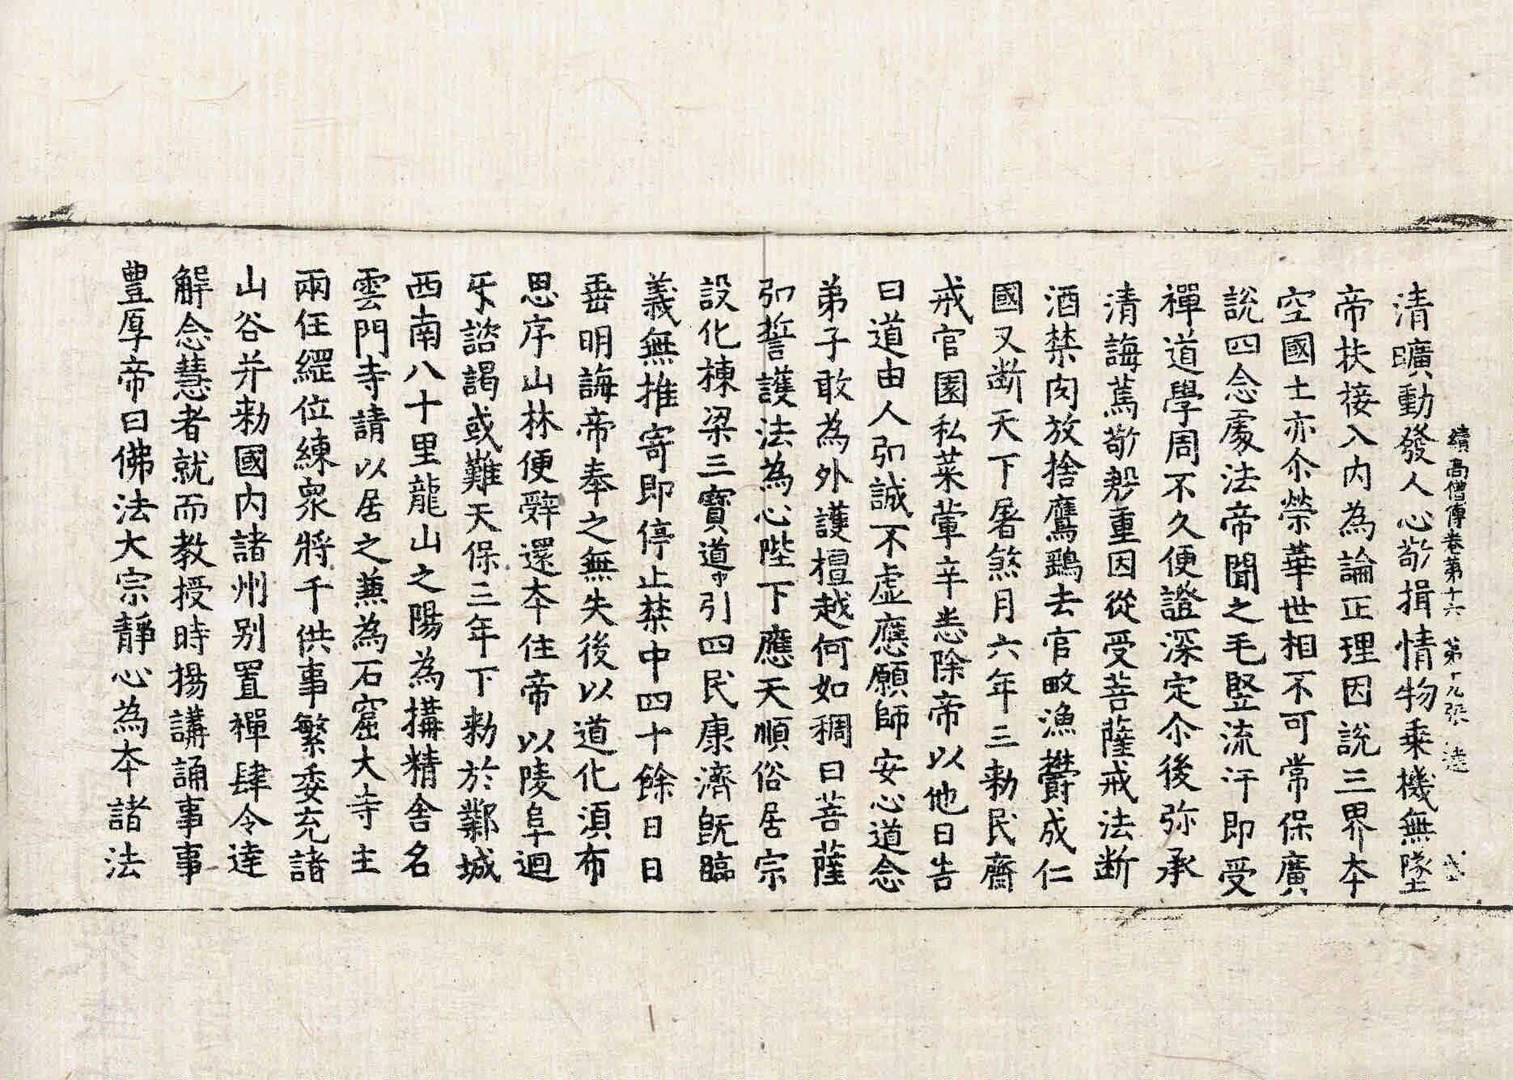 續高僧傳卷第十六 第十九張
清曠動發人心敬揖情物乗機無墜
帝扶接入内為論正理因説三界本
空國土亦尒榮華世相不可常保廣
説四念處法帝聞之毛竪流汗即受
禪道學周不久便證深定尒後弥承
清誨篤敬慇重因從受菩薩戒法断
酒禁肉放捨鷹鷂去官畋漁欝成仁
國又断天下屠煞月六年三勑民齋
戒官園私菜葷辛悉除帝以他日告
曰道由人弘誠不虚應願師安心道念
弟子敢為外護檀越何如稠曰菩薩
弘誓護法為心陛下應天順俗居宗
設化棟梁三寶道中引四民康濟既臨
義無推寄即停止禁中四十餘日日
垂明誨帝奉之無失後以道化須布
思序山林便辞還本住帝以陵阜迴
牙諮謁或難天保三年下勑於鄴城
西南八十里龍山之陽為搆精舎名
雲門寺請以居之兼為石窟大寺主
兩任綱位練衆將千供事繁委充諸
山谷并勑國内諸州别置禪肆令達
解念慧者就而教授時揚講誦事事
豊厚帝曰佛法大宗静心為本諸法